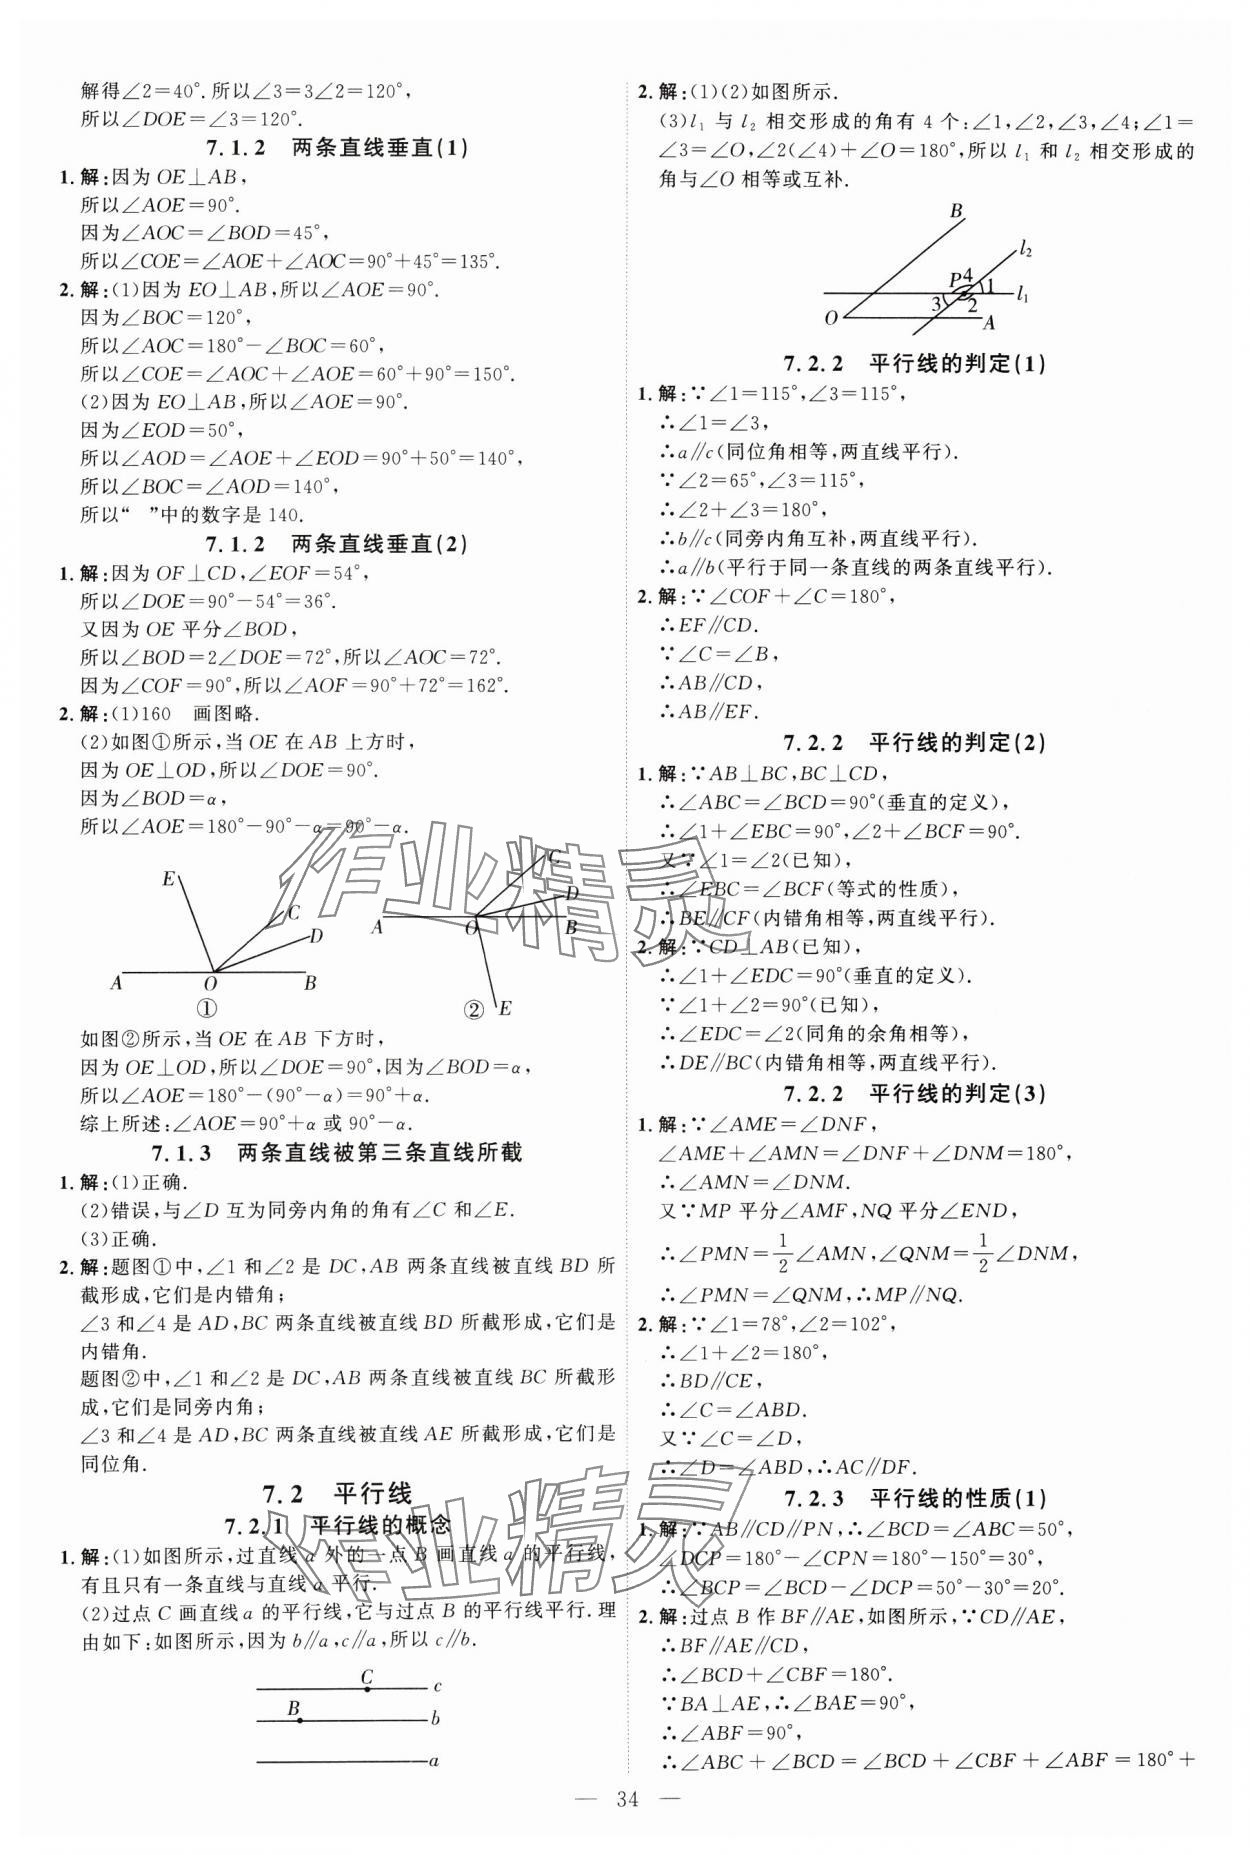 解得∠2=40°.所以∠3=3∠2=120°,
所以∠DOE=∠3=120°.
7.1.2 两条直线垂直(1)
1.解:因为 OE⊥AB,
所以∠AOE=90°.
因为∠AOC=∠BOD=45°,
所以∠COE=∠AOE+∠AOC=90°+45°=135°.
2.解:(1)因为 EO⊥AB,所以∠AOE=90°.
因为∠BOC=120°,
所以∠AOC=180°-∠BOC=60°,
所以∠COE=∠AOC+∠AOE=60°+90°=150°.
(2)因为 EO⊥AB,所以∠AOE=90°.
因为∠EOD=50°,
所以∠AOD=∠AOE+∠EOD=90°+50°=140°,
所以∠BOC=∠AOD=140°,
所以“ ”中的数字是 140.
7.1.2 两条直线垂直(2)
1.解:因为 OF⊥CD,∠EOF=54°,
所以∠DOE=90°-54°=36°.
又因为 OE 平分∠BOD,
所以∠BOD=2∠DOE=72°,所以∠AOC=72°.
因为∠COF=90°,所以∠AOF=90°+72°=162°.
2.解:(1)160 画图略.
(2)如图①所示,当 OE 在 AB 上方时,
因为 OE⊥OD,所以∠DOE=90°.
因为∠BOD=α,
所以∠AOE=180°-90°-α=90°-α.
E
C
D
A
O
B
①
C
D
A
O
B
②
E
如图②所示,当 OE 在 AB 下方时,
因为 OE⊥OD,所以∠DOE=90°,因为∠BOD=α,
所以∠AOE=180°-(90°-α)=90°+α.
综上所述:∠AOE=90°+α 或 90°-α.
7.1.3 两条直线被第三条直线所截
1.解:(1)正确.
(2)错误,与∠D 互为同旁内角的角有∠C 和∠E.
(3)正确.
2.解:题图①中,∠1 和∠2 是 DC,AB 两条直线被直线 BD 所
截形成,它们是内错角;
∠3 和∠4 是 AD,BC 两条直线被直线 BD 所截形成,它们是
内错角.
题图②中,∠1 和∠2 是 DC,AB 两条直线被直线 BC 所截形
成,它们是同旁内角;
∠3 和∠4 是 AD,BC 两条直线被直线 AE 所截形成,它们是
同位角.
7.2 平行线
7.2.1 平行线的概念
1.解:(1)如图所示,过直线 a 外的一点 B 画直线 a 的平行线,
有且只有一条直线与直线 a 平行.
(2)过点 C 画直线 a 的平行线,它与过点 B 的平行线平行.理
由如下:如图所示,因为 b∥a,c∥a,所以 c∥b.
C
c
B
b
a
2.解:(1)(2)如图所示.
(3)l₁ 与 l₂ 相交形成的角有 4 个:∠1,∠2,∠3,∠4;∠1=
∠3=∠O,∠2(∠4)+∠O=180°,所以 l₁ 和 l₂ 相交形成的
角与∠O 相等或互补.
B
l₂
P
4
1
3
2
l₁
O
A
7.2.2 平行线的判定(1)
1.解:∵∠1=115°,∠3=115°,
∴∠1=∠3,
∴a∥c(同位角相等,两直线平行).
∵∠2=65°,∠3=115°,
∴∠2+∠3=180°,
∴b∥c(同旁内角互补,两直线平行).
∴a∥b(平行于同一条直线的两条直线平行).
2.解:∵∠COF+∠C=180°,
∴EF∥CD.
∵∠C=∠B,
∴AB∥CD,
∴AB∥EF.
7.2.2 平行线的判定(2)
1.解:∵AB⊥BC,BC⊥CD,
∴∠ABC=∠BCD=90°(垂直的定义),
∴∠1+∠EBC=90°,∠2+∠BCF=90°.
又∵∠1=∠2(已知),
∴∠EBC=∠BCF(等式的性质),
∴BE∥CF(内错角相等,两直线平行).
2.解:∵CD⊥AB(已知),
∴∠1+∠EDC=90°(垂直的定义).
∵∠1+∠2=90°(已知),
∴∠EDC=∠2(同角的余角相等),
∴DE∥BC(内错角相等,两直线平行).
7.2.2 平行线的判定(3)
1.解:∵∠AME=∠DNF,
∠AME+∠AMN=∠DNF+∠DNM=180°,
∴∠AMN=∠DNM.
又∵MP 平分∠AMF,NQ 平分∠END,
∴∠PMN=1/2∠AMN,∠QNM=1/2∠DNM,
∴∠PMN=∠QNM,∴MP∥NQ.
2.解:∵∠1=78°,∠2=102°,
∴∠1+∠2=180°,
∴BD∥CE,
∴∠C=∠ABD.
又∵∠C=∠D,
∴∠D=∠ABD,∴AC∥DF.
7.2.3 平行线的性质(1)
1.解:∵AB∥CD∥PN,∴∠BCD=∠ABC=50°,
∠DCP=180°-∠CPN=180°-150°=30°,
∴∠BCP=∠BCD-∠DCP=50°-30°=20°.
2.解:过点 B 作 BF∥AE,如图所示,∵CD∥AE,
∴BF∥AE∥CD,
∴∠BCD+∠CBF=180°.
∵BA⊥AE,∴∠BAE=90°,
∴∠ABF=90°,
∴∠ABC+∠BCD=∠BCD+∠CBF+∠ABF=180°+
— 34 —
作业精灵
作业精灵